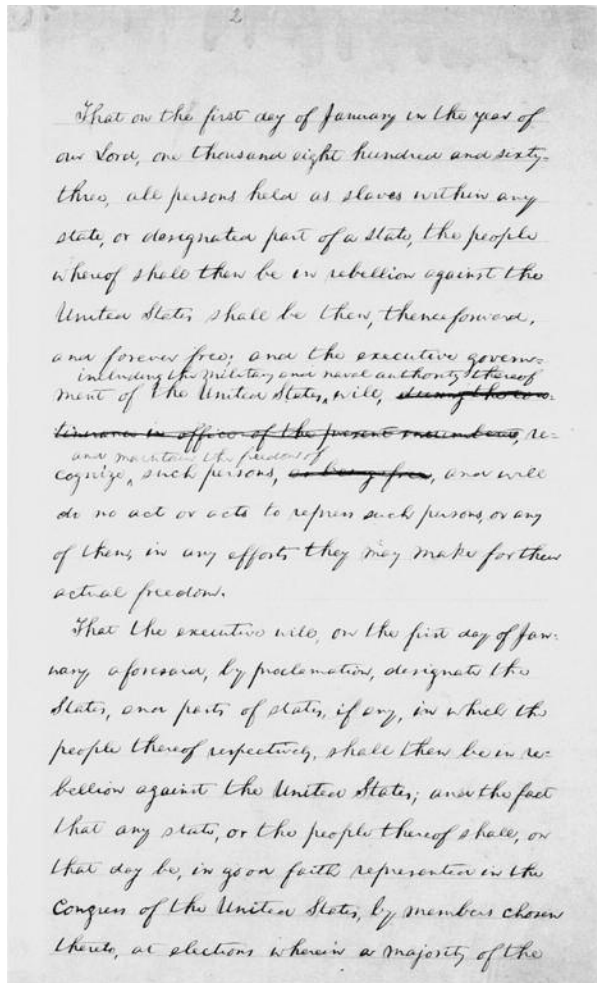 2
That on the first day of January in the year of
our Lord, one thousand eight hundred and sixty-
three, all persons held as slaves within any
state, or designated part of a state, the people
whereof shall then be in rebellion against the
United States shall be then, thenceforward,
and forever free; and the executive govern-
including the military and naval authority thereof
ment of the United States, will, during the con-
tinuance in office of the present incumbents, re-
and maintain the freedom of
cognize, such persons, as being free, and will
do no act or acts to repress such persons, or any
of them, in any efforts they may make for their
actual freedom.
That the executive will, on the first day of Jan-
uary aforesaid, by proclamation, designate the
States, and parts of states, if any, in which the
people thereof respectively, shall then be in re-
bellion against the United States; and the fact
that any state, or the people thereof shall, on
that day be, in good faith represented in the
Congress of the United States, by members chosen
thereto, at elections wherein a majority of the